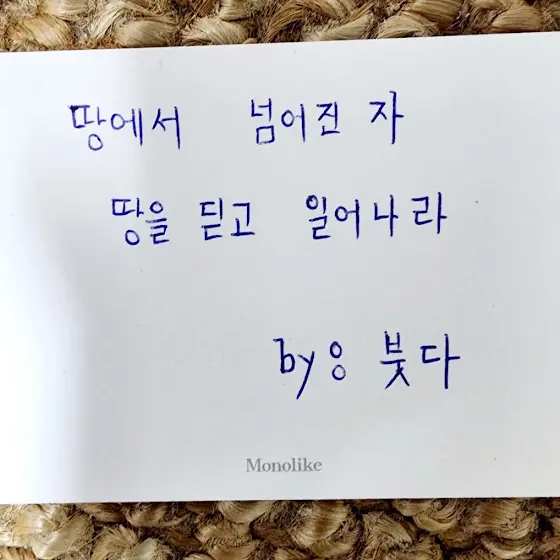 땅에서 넘어진 자
땅을 딛고 일어나라
by: 붓다
Monolike